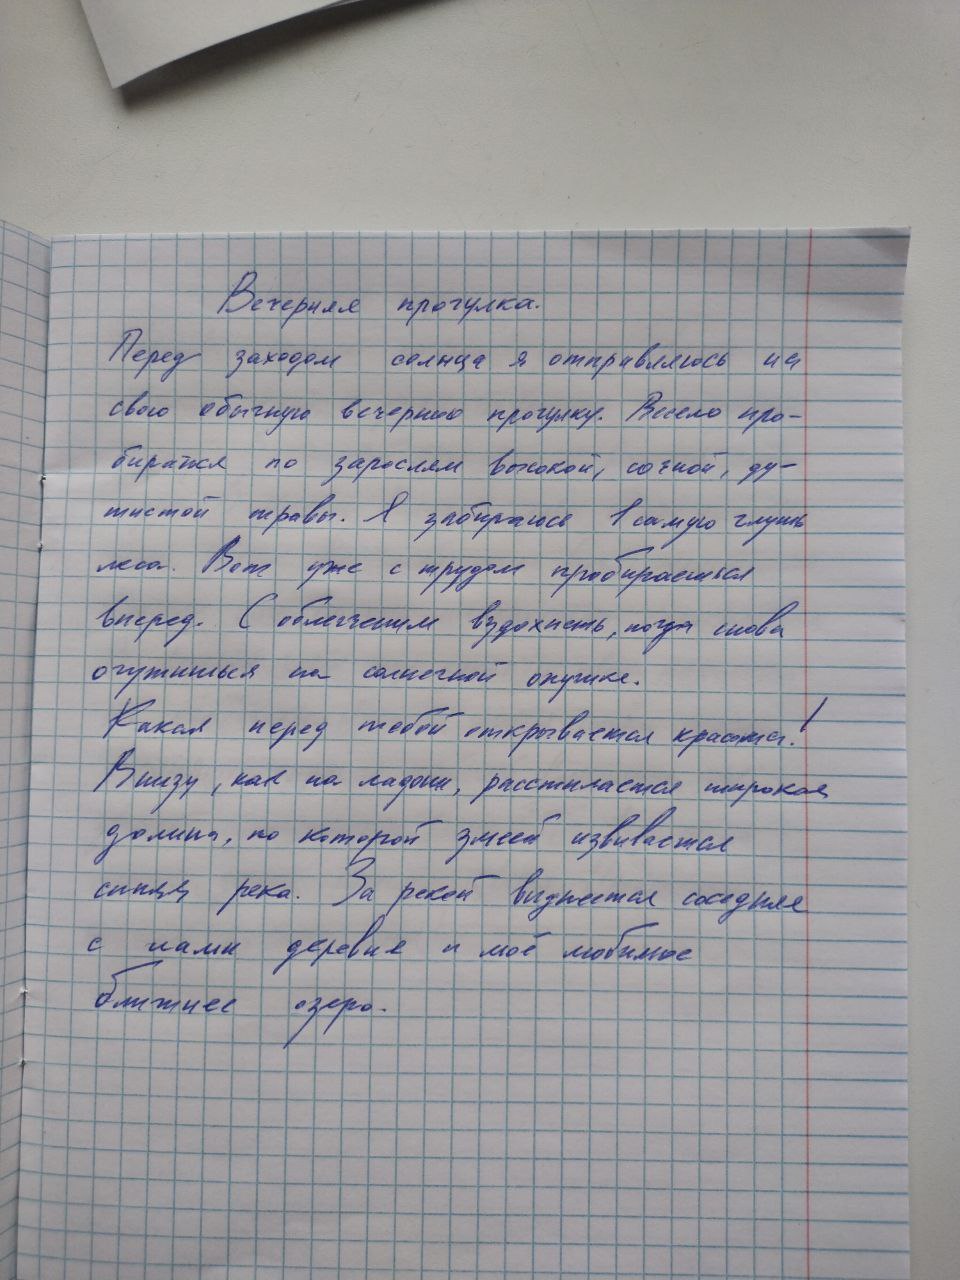 Вечерняя прогулка.
Перед заходом солнца я отправляюсь на
свою обычную вечернюю прогулку. Весело про-
бираться по зарослям высокой, сочной, ду-
шистой травы. Я забираюсь в самую глушь
леса. Вот уже с трудом пробираешься
вперед. С облегчением вздохнешь, когда снова
очутишься на солнечной опушке.
Какая перед тобой открывается красота!
Внизу, как на ладони, расстилается широкая
долина, по которой змеей извивается
синяя река. За рекой виднеется соседняя
с нами деревня и моё любимое
ближнее озеро.